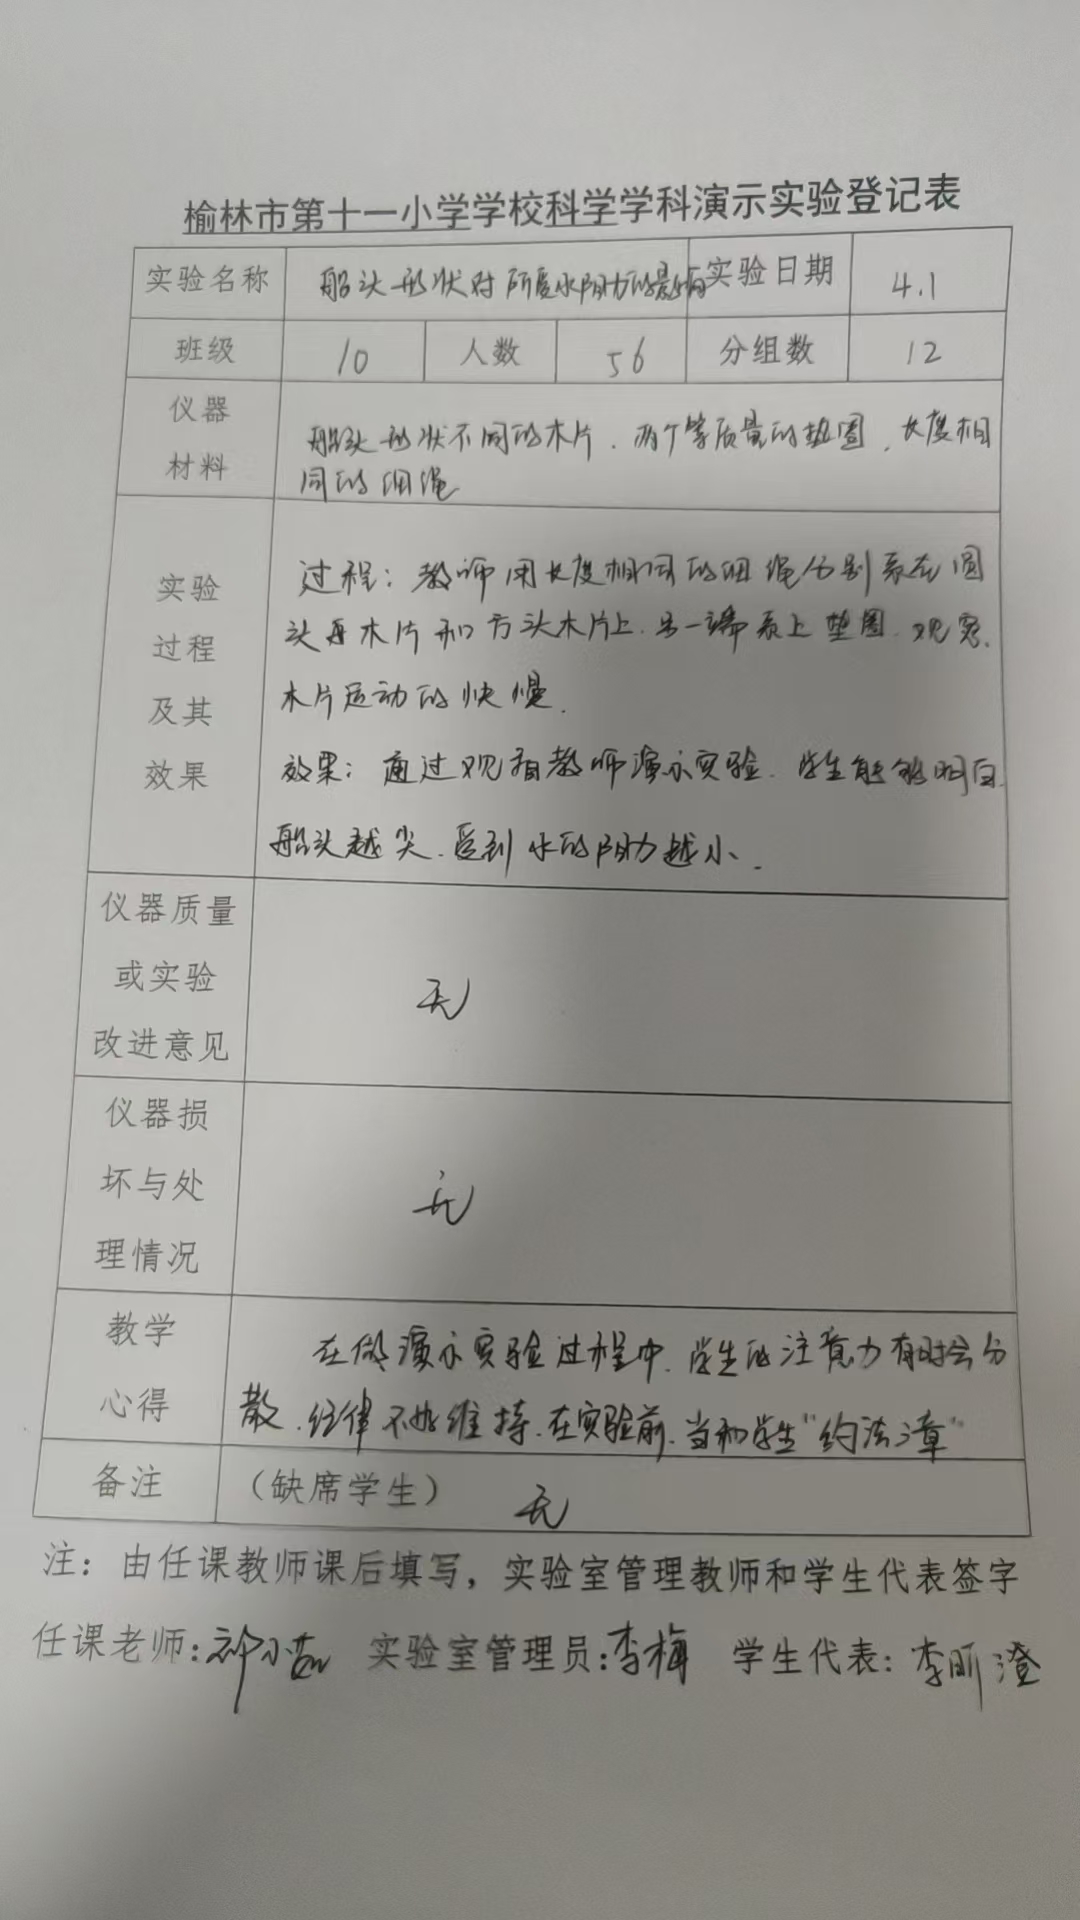 榆林市第十一小学学校科学学科演示实验登记表
实验名称 船头形状对所受水阻力的影响 实验日期 4.1
班级 10 人数 56 分组数 12
仪器材料 船头形状不同的木片、两个等质量的垫圈、长度相
同的细绳
实验过程及其效果 过程：教师用长度相同的细绳分别系在圆
头木片和方头木片上.另一端系上垫圈.观察.
木片运动的快慢.
效果：通过观看教师演示实验.学生能够明白
船头越尖.受到水的阻力越小.
仪器质量或实验改进意见 无
仪器损坏与处理情况 无
教学心得 在做演示实验过程中.学生的注意力有时会分
散.纪律不好维持.在实验前.当和学生“约法三章”
备注 （缺席学生） 无
注：由任课教师课后填写，实验室管理教师和学生代表签字
任课老师: 实验室管理员:李梅 学生代表:李昕澄